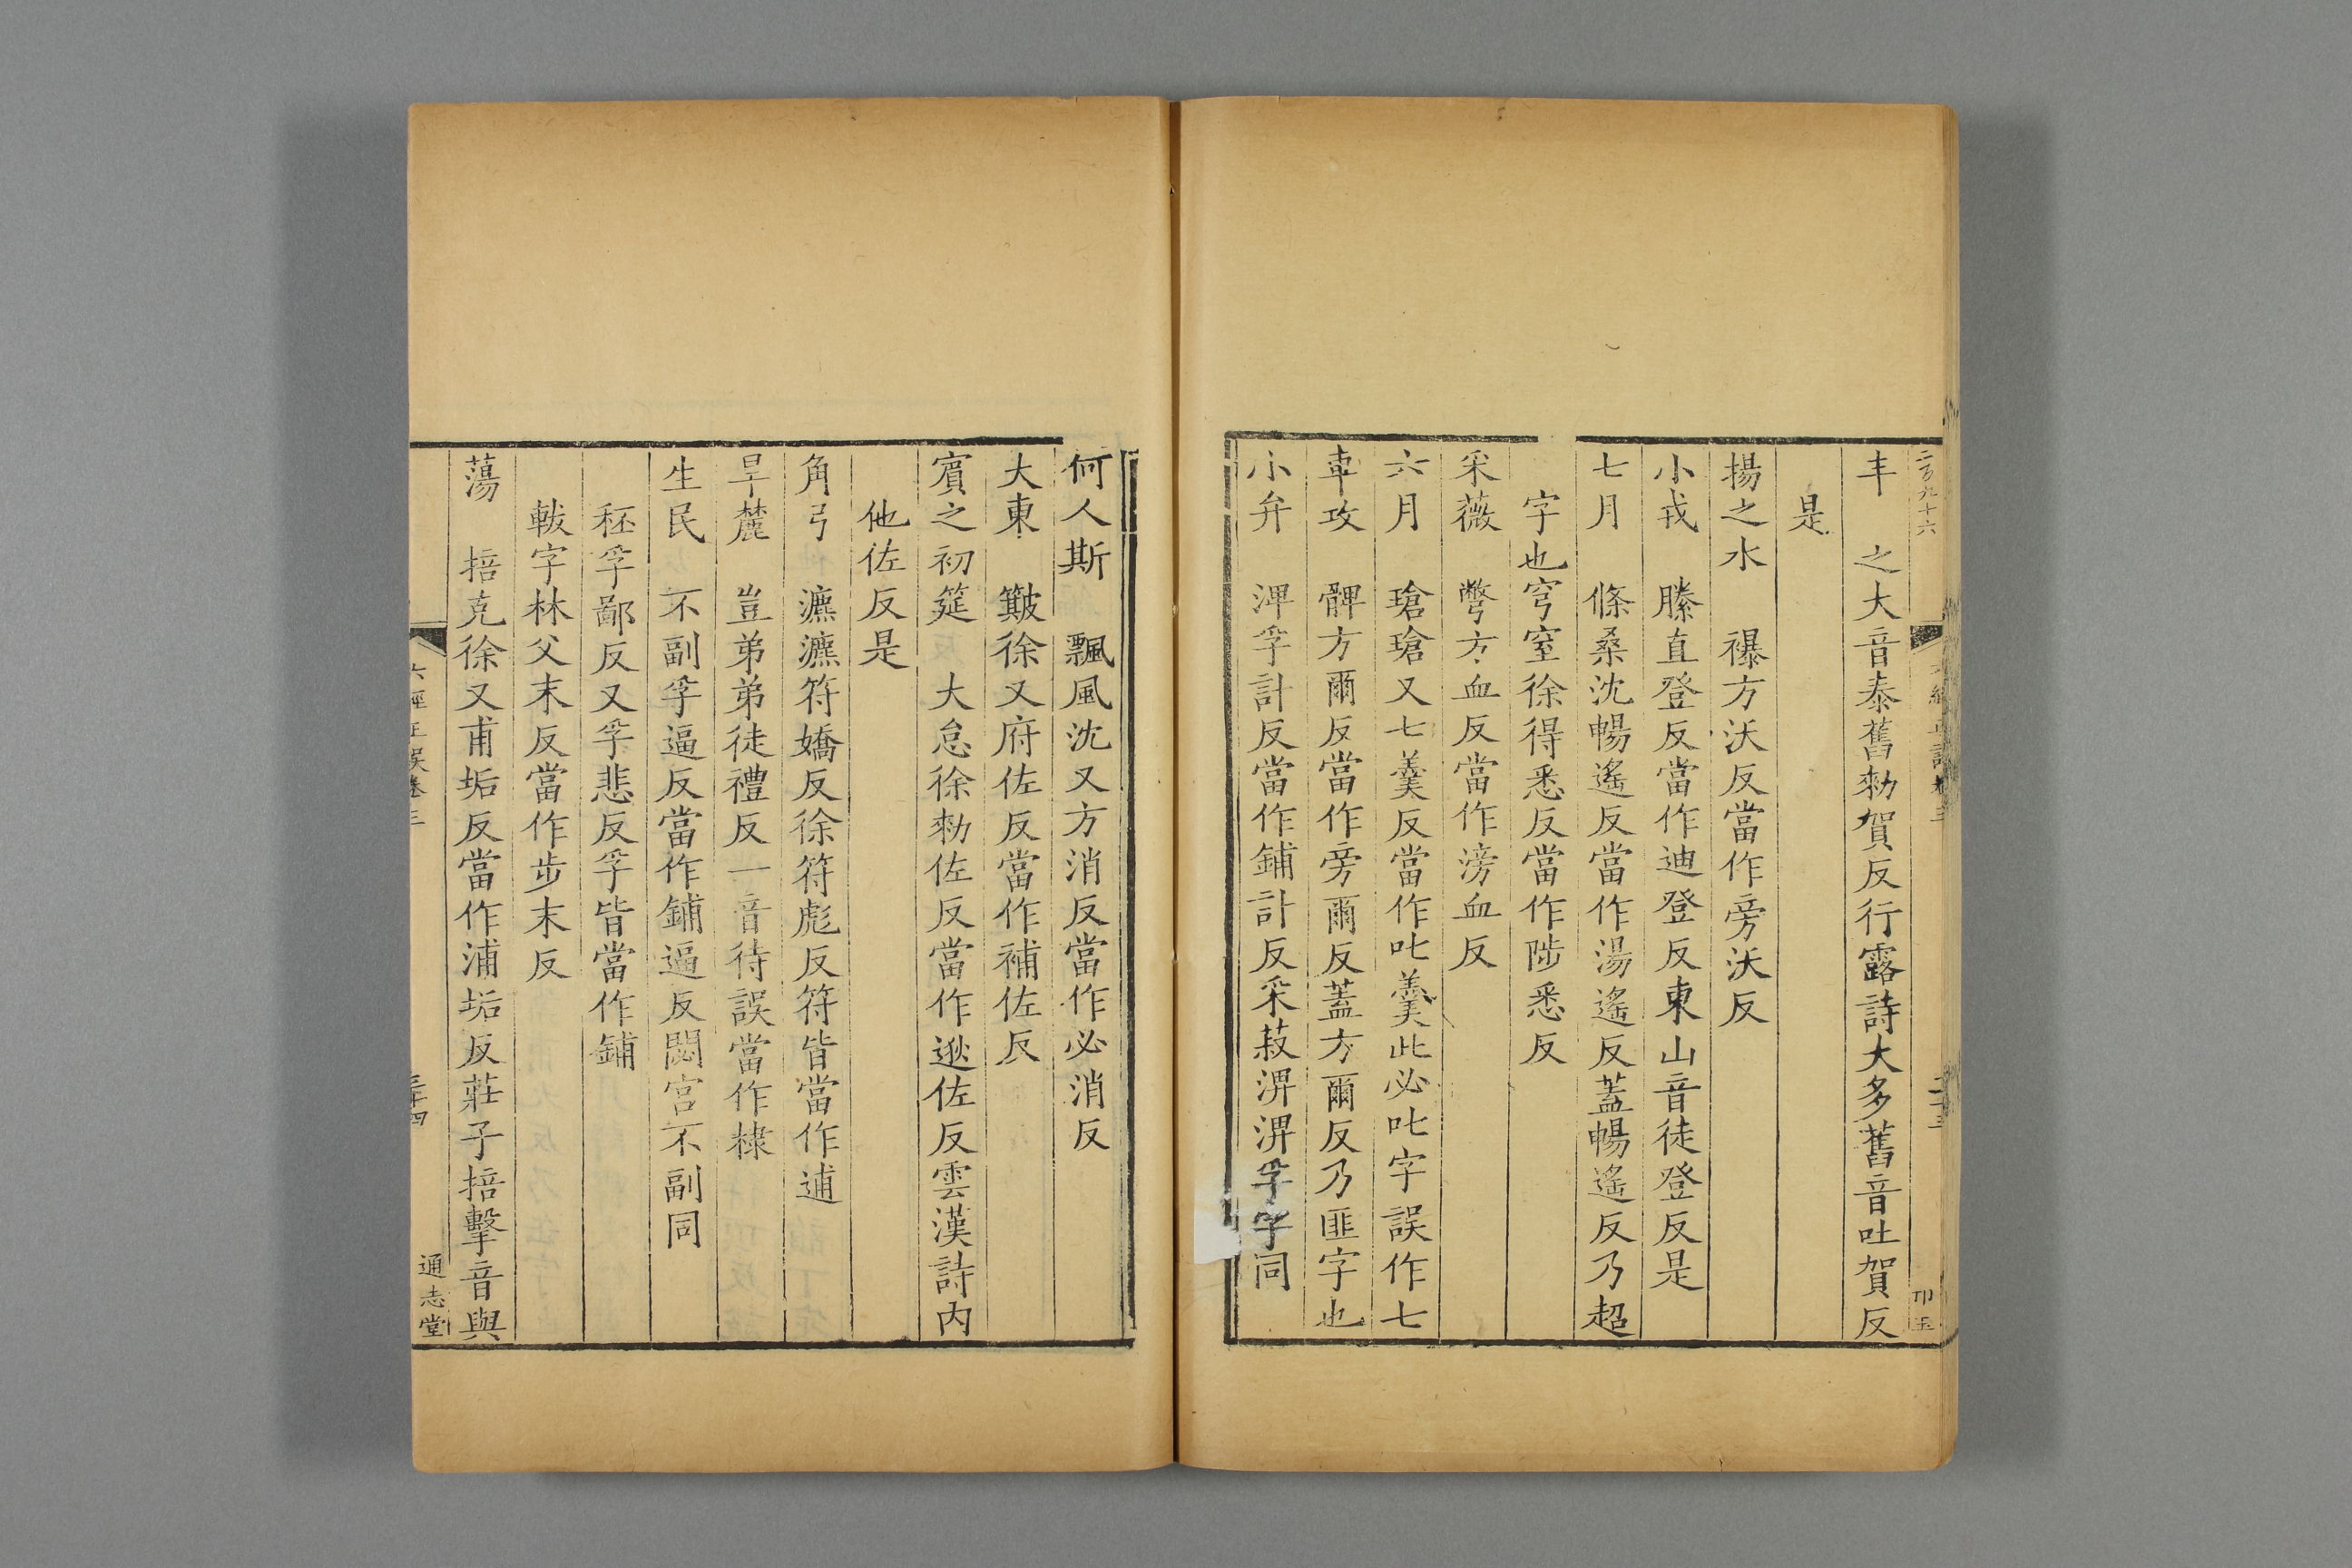 二百九十六
丰　之大音泰舊勑賀反行露詩大多舊音吐賀反
是
揚之水　襮方沃反當作旁沃反
小戎　縢直登反當作迪登反東山音徒登反是
七月　條桑沈暢遙反當作湯遙反蓋暢遙反乃超
字也穹窒徐得悉反當作陟悉反
采薇　彆方血反當作滂血反
六月　瑲瑲又七羹反當作叱羹此必叱字誤作七
車攻　髀方爾反當作旁爾反蓋方爾反乃匪字也
小弁　淠孚計反當作鋪計反采菽淠淠孚字同
何人斯　飄風沈又方消反當作必消反
大東　簸徐又府佐反當作補佐反
賓之初筵　大怠徐勑佐反當作逖佐反雲漢詩内
他佐反是
角弓　瀌瀌符嬌反徐符彪反符皆當作逋
旱麓　豈弟弟徒禮反一音待誤當作棣
生民　不副孚逼反當作鋪逼反閟宮不副同
秠孚鄙反又孚悲反孚皆當作鋪
軷字林父末反當作步末反
蕩　掊克徐又甫垢反當作浦垢反莊子掊擊音與
六經正誤卷三
通志堂